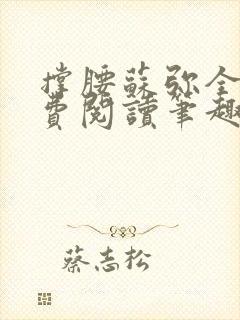 撐腰蘇弥全
費閱讀筆趣
蔡志松